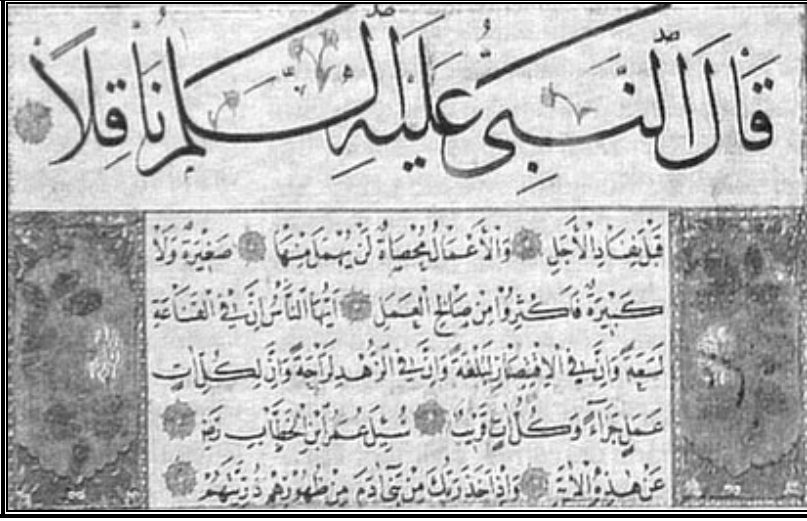 قَالَ النَّبِيُّ عَلَيْهِ السَّلَامُ نَاقِلاً
قَبْلَ نَفَادِ الْأَجَلِ وَالْأَعْمَالُ مُحْصَاةٌ لَنْ يُهْمَلَ مِنْهَا صَغِيرَةٌ وَلَا
كَبِيرَةٌ فَاكْثِرُوا مِنْ صَالِحِ الْعَمَلِ اَيُّهَا النَّاسُ اِنَّ فِي الْقَنَاعَةِ
لَسَعَةً وَاِنَّ فِي الْاِقْتِصَادِ لَبُلْغَةً وَاِنَّ فِي الزُّهْدِ لَرَاحَةً وَاِنَّ لِكُلِّ
عَمَلٍ جَزَاءً وَكُلُّ اٰتٍ قَرِيبٌ سُئِلَ عُمَرُ ابْنُ الْخَطَّابِ رَضِ
عَنْ هٰذِهِ الْاٰيَةِ وَاِذْ اَخَذَ رَبُّكَ مِنْ بَنِي اٰدَمَ مِنْ ظُهُورِهِمْ ذُرِّيَّتَهُمْ